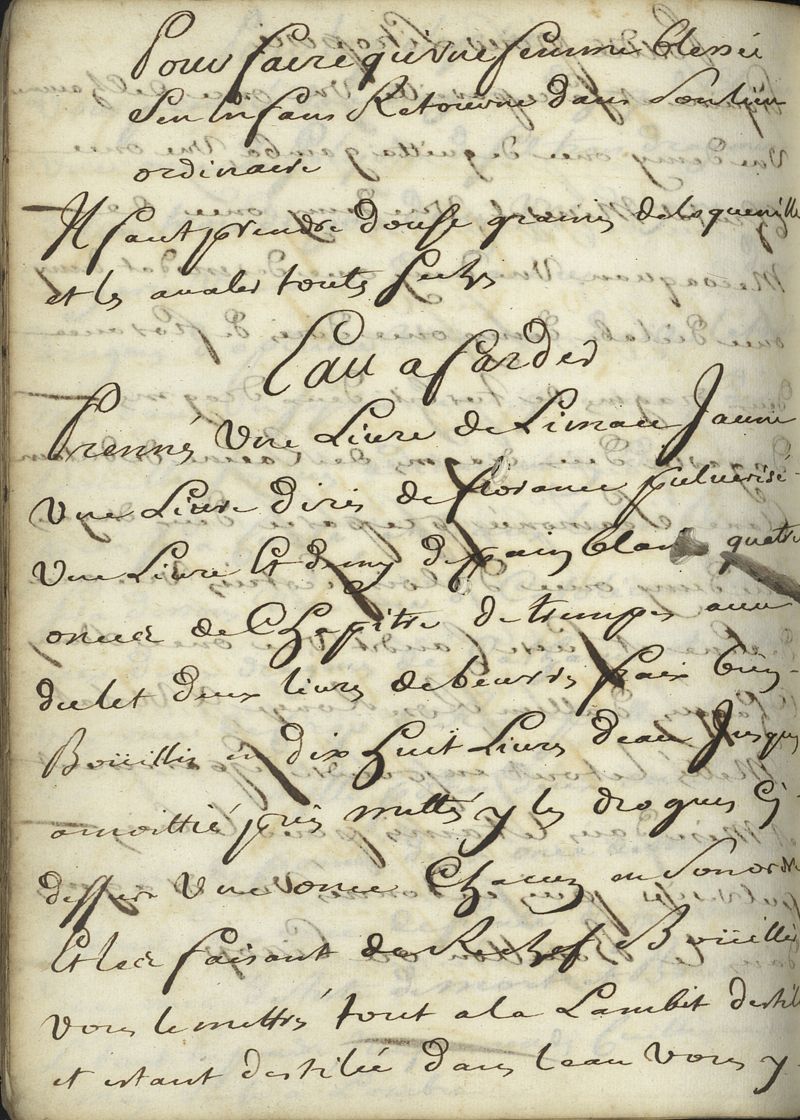 Pour faire qu'une femme blessée
Son Enfans Retourne dans Son lieu
ordinaire
Il faut prendre douse grains de
et les avaler toutes
Eau a farder
Prennés Une Liure de Limace Jaune
Une Liure diris de florance pulverisé
Une Liure Et demy de pain blanc quatre
onces de trempés avec
du let deux liures de beurre fraix bien
Boüillir en dix huit Liures deau Jusques
a moittié puis mettés y les drogues Cj
dessus Une once Chacun en Son ordre
Et les faisant de Rechef Boüillir
vous le mettrés tout a la Lambit destil
et estant destilée dans leau vous y